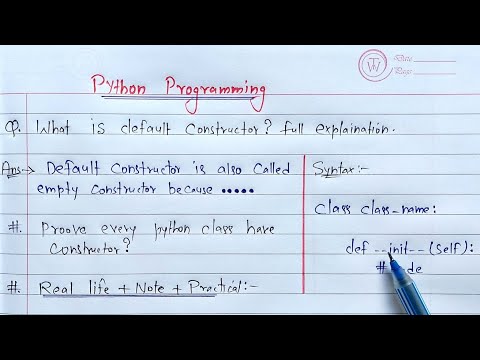 Date
Page
Python Programming
Q. What is default constructor? full explaination.
Ans→ Default constructor is also called
empty constructor because .....
#. Proove every python class have
constructor?
#. Real life + Note + Practical:-
Syntax:-
Class class_name:
def __init__(self):
# de